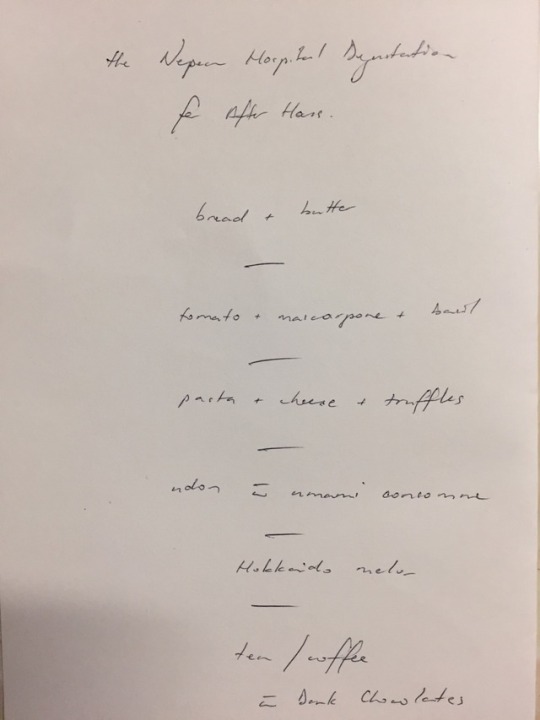 the Nepean Hospital Degustation
for After Hours.
bread + butter
tomato + mascarpone + basil
pasta + cheese + truffles
udon c̄ umami consomme
Hokkaido melon
tea / coffee
c̄ Dark Chocolates